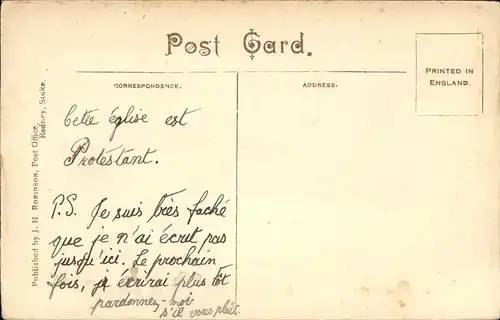 Post Card.
PRINTED IN
ENGLAND.
CORRESPONDENCE.
ADDRESS.
Cette église est
Protestant.
P.S. Je suis très faché
que je n'ai écrit pas
jusqu'ici. Le prochain
fois, je écrirai plus tôt
pardonnez-moi
s'il vous plaît.
Published by J. H. ROBINSON, Post Office,
Rodney, Stoke.